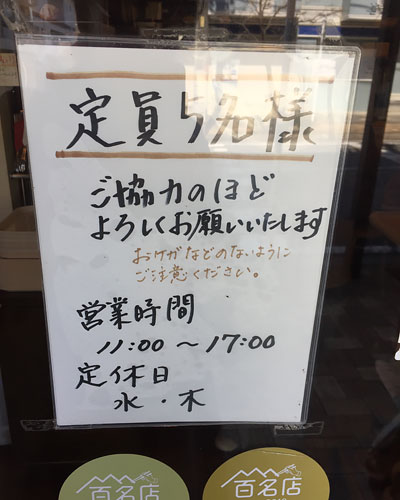 定員5名様
ご協力のほど
よろしくお願いいたします
おケガなどのないように
ご注意ください。
営業時間
11:00 〜 17:00
定休日
水・木
百名店
百名店